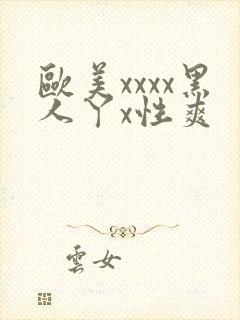 歐美xxxx黑
人丫x性爽
雲女